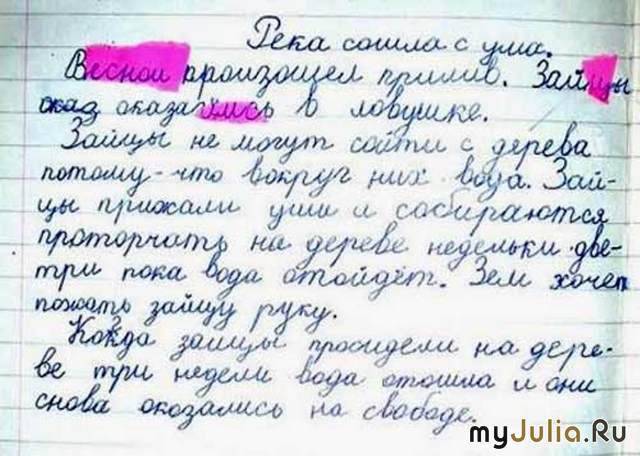 Река сошла с ума.
Весной произошел прилив. Зайцы
окад оказались в ловушке.
Зайцы не могут сойти с дерева
потому-что вокруг них вода. Зай-
цы прижали уши и собираются
проторчать на дереве недельки две-
три пока вода отойдёт. Зем хочет
пожать зайцу руку.
Когда зайцы просидели на дере-
ве три недели вода отошла и они
снова оказались на свободе.
myJulia.Ru